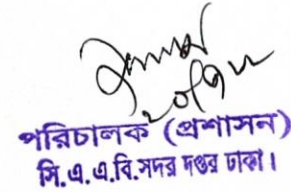 পরিচালক (প্রশাসন)
সি.এ.এ.বি.সদর দপ্তর ঢাকা।